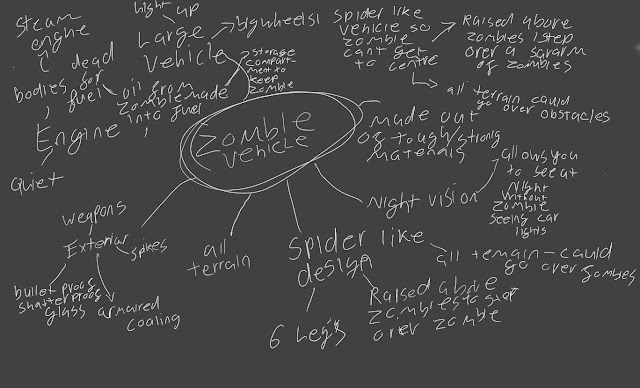 steam
engine
dead
bodies for
fuel
Engine
Quiet
hight up
Large
vehicle
big wheels
storage
compart-
ment to
keep
zomble
oil from
zomble made
into fuel
spider like
vehicle so
zomble
cant get
to centre
Raised above
zombles 1 step
over a swarm
of zombles
all terrain could
go over obstacles
zomble
vehicle
made out
of tough/strong
materials
Night vision
allows you
to see at
Night
without
zomble
seeing car
lights
weapons
Exterior
spikes
bullet proof
shatter proof
glass
armaired
coaling
all
terrain
spider like
design
6 Legs
Raised above
zombles to step
over zomble
all terrain - could
go over zombles